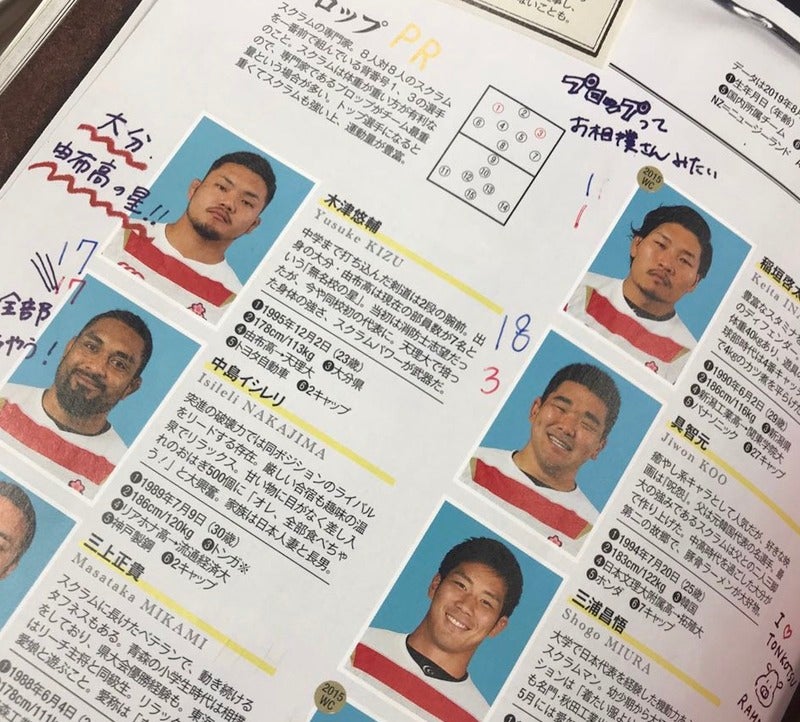 ロップ PR
スクラムの専門家。8人対8人のスクラム
を一番前で組んでいる背番号1、3の選手
のこと。スクラムは体重が重い方が有利な
ので、専門家であるプロップがチーム最重
量という場合が多い。トップ選手になると
重くてスクラムも強い上、運動量が豊富。
ないことも。
データは2019年8
❶生年月日(年齢)
❺国内所属チーム
NZ=ニュージーランド
プロップって
お相撲さんみたい
大分、
由布高の星!!
17
17
全部
ちゃう!
木津悠輔
Yusuke KIZU
中学まで打ち込んだ剣道は2段の腕前。出
身の大分・由布高は現在の部員数が7名と
いう「無名校の星」。当初は消防士志望だっ
たが、今や同校初の代表に。天理大で培っ
た身体の強さ、スクラムパワーが武器だ。
❶1995年12月2日(23歳)
❷178cm/113kg ❸大分県
❹由布高→天理大
❺トヨタ自動車 ❻2キャップ
中島イシレリ
Isileli NAKAJIMA
突進の破壊力では同ポジションのライバル
をリードする存在。厳しい合宿も趣味の温
泉でリラックス。甘い物に目がなく差し入
れのおはぎ500個に「オレ、全部食べちゃ
う!」と大興奮。家族は日本人妻と長男。
❶1989年7月9日(30歳)
❷186cm/120kg ❸トンガ※
❹リアホナ高→流通経済大
❺神戸製鋼 ❻2キャップ
三上正貴
Masataka MIKAMI
スクラムに長けたベテランで、動き続ける
タフネスもある。青森の小学生時代は相撲
をしており、県大会優勝経験も。東海
はリーチ主将と同級生。リラッ
愛娘と遊ぶこと。愛称は「
❶1988年6月4日(
178cm/11
18
3
1
1
2015 WC
稲垣啓太
Keita IN
豊富なスタミナ
のディフェン
体重40kgあり、遊具
球部時代は4番キャッ
で4kgのカツ煮を平らげた
❶1990年6月2日(29歳)
❷186cm/116kg ❸新潟県
❹新潟工業高→関東学院大
❺パナソニック ❻27キャップ
具智元
Jiwon KOO
癒やし系キャラとして人気だが、好きな映
画は「呪怨」。父は元韓国代表の名選手。最
大の強みであるスクラムは父との二人三脚
で作り上げた。中高時代を過ごした大分が
第二の故郷で、豚骨ラーメンが大好物。
❶1994年7月20日(25歳)
❷183cm/122kg ❸韓国
❹日本文理大附属高→拓殖大
❺ホンダ ❻7キャップ
三浦昌悟
Shogo MIURA
大学で日本代表を経験した機動力
スクラムマン。幼少期から
ションは「着たい服
も名門・秋田工
5月には妻
I ♥
TONKOTSU
RA
2015 WC
① ② ③
④ ⑤
⑥ ⑧ ⑦
⑨
⑩
⑪ ⑫ ⑬ ⑭
⑮